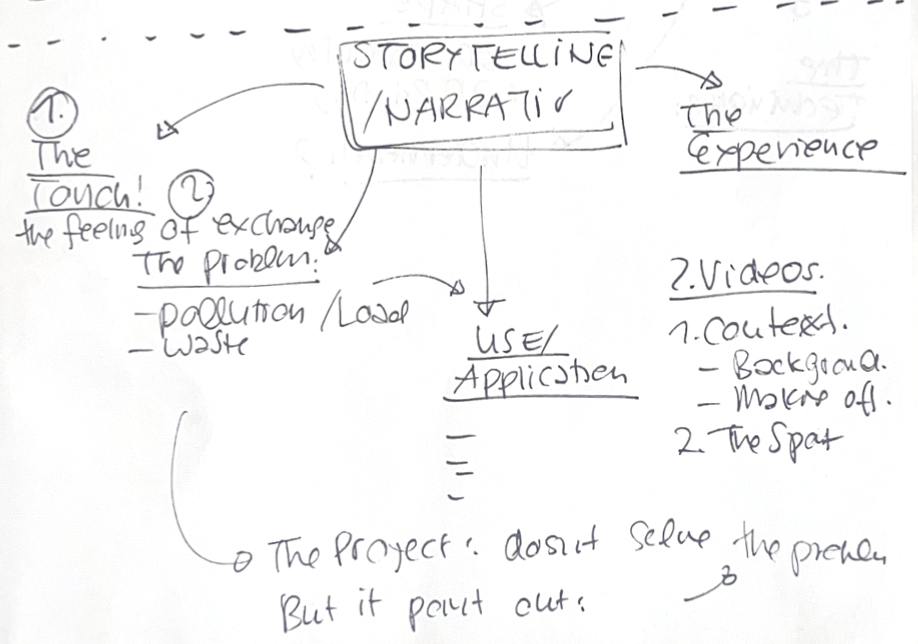 STORYTELLING
/NARRATIV
1.
The
Touch!
the feeling of exchange
2.
The problem:
- pollution /Load
- waste
USE/
Application
The
Experience
2. Videos.
1. Context.
- Background.
- Making off.
2. The Spot
The Proyect: dosnt solve the
But it point out: